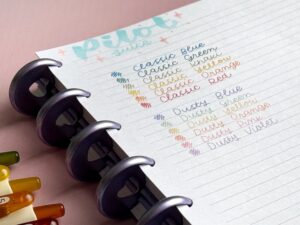 Pilot
Juice
Classic Blue
Classic Green
Classic Khaki
Classic Yellow
Classic Orange
Classic Red
Dusty Blue
Dusty Green
Dusty Yellow
Dusty Orange
Dusty Pink
Dusty Violet